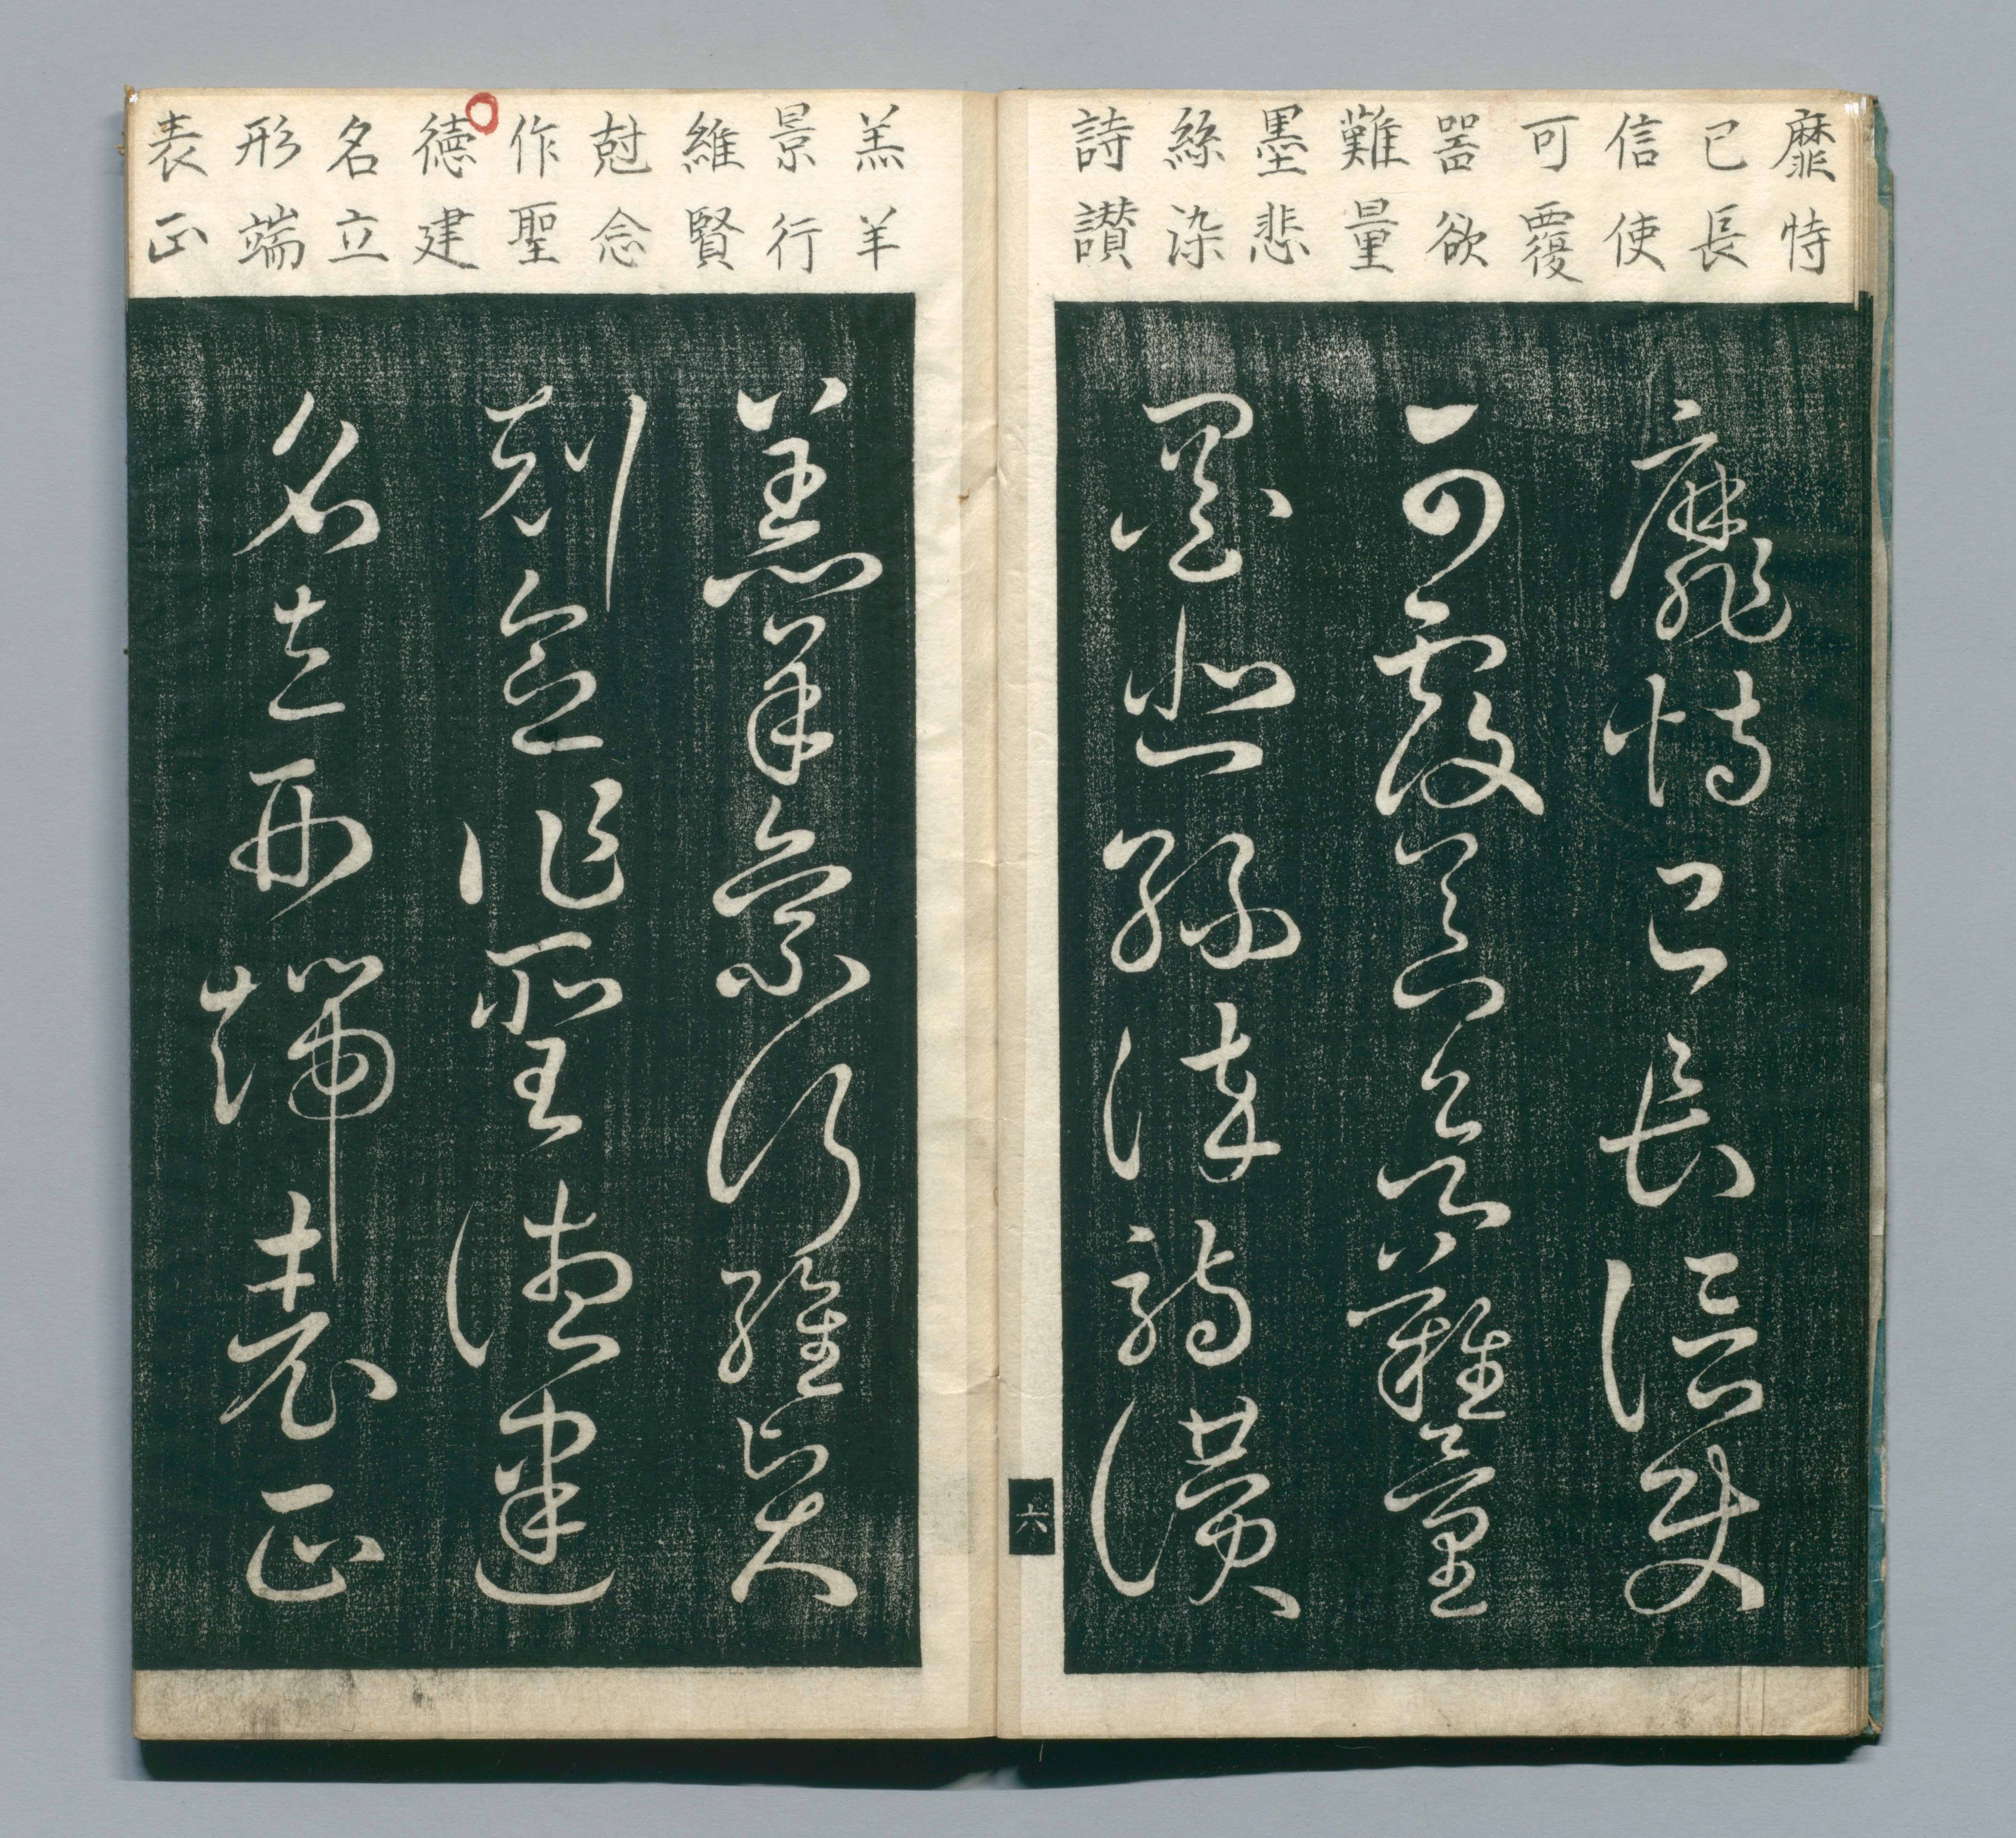 靡恃
已長
信使
可覆
器欲
難量
墨悲
絲染
詩讃
靡恃已長信使
可覆器欲難量
墨悲絲染詩讃
六
羔羊
景行
維賢
尅念
作聖
徳建
名立
形端
表正
羔羊景行維賢
剋念作聖徳建
名立形端表正